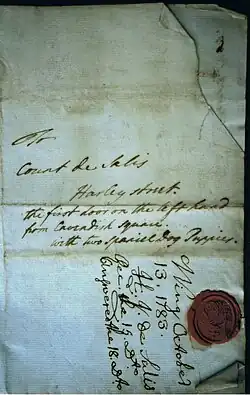 To
Count de Salis
Harley street.
the first door on the left hand
from Cavendish Square.
with two spaniel Dog Puppies.
Wing October
13, 1783.
H. J. De Salis
Rec. the 15. D.to
Answered the 18. D.to